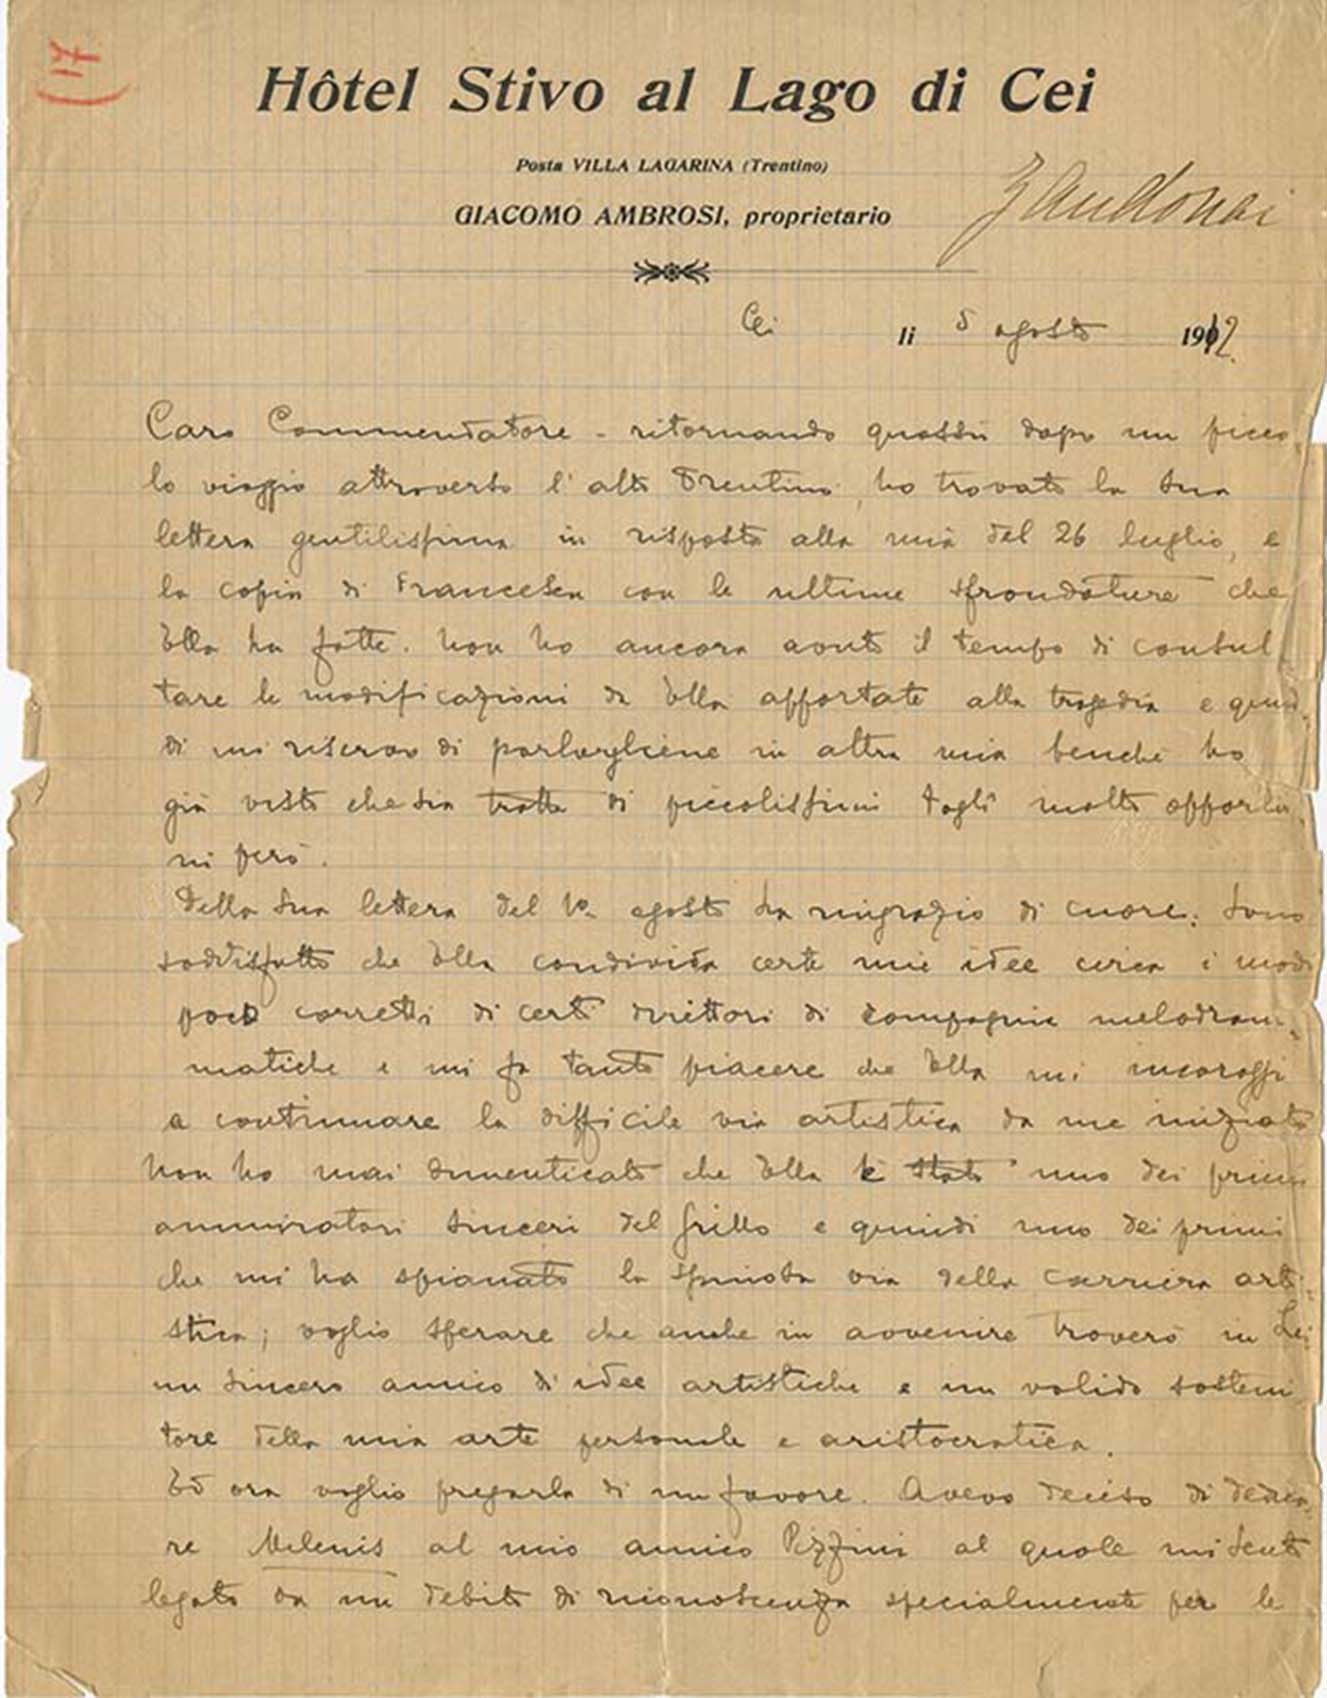 17
Hôtel Stivo al Lago di Cei
Posta VILLA LAGARINA (Trentino)
GIACOMO AMBROSI, proprietario
Zandonai
Cei li 5 agosto 1912.
Caro Commendatore - ritornando quassù dopo un picco-
lo viaggio attraverso l'alto Trentino, ho trovato la sua
lettera gentilissima in risposta alla mia del 26 luglio, e
la copia di Francesca con le ultime sfrondature che
Ella ha fatte. Non ho ancora avuto il tempo di consul
tare le modificazioni da Ella apportate alla tragedia e quin-
di mi riservo di parlargliene in altra mia benchè ho
già visto che sia tratta di piccolissimi tagli molto opportu-
ni però.
Della sua lettera del 1o agosto La ringrazio di cuore. Sono
soddisfatto che Ella condivida certe mie idee circa i modi
poco corretti di certi direttori di compagnie melodram-
matiche e mi fa tanto piacere che Ella mi incoraggi
a continuare la difficile via artistica da me iniziata
Non ho mai dimenticato che Ella è stato uno dei primi
ammiratori sinceri del Grillo e quindi uno dei primi
che mi ha spianato la spinosa via della carriera arti-
stica; voglio sperare che anche in avvenire troverò in Lei
un sincero amico di idee artistiche e un valido sosteni
tore della mia arte personale e aristocratica.
Ed ora voglio pregarla di un favore. Avevo deciso di dedica-
re Melenis al mio amico Pizzini al quale mi sento
legato da un debito di riconoscenza specialmente per le